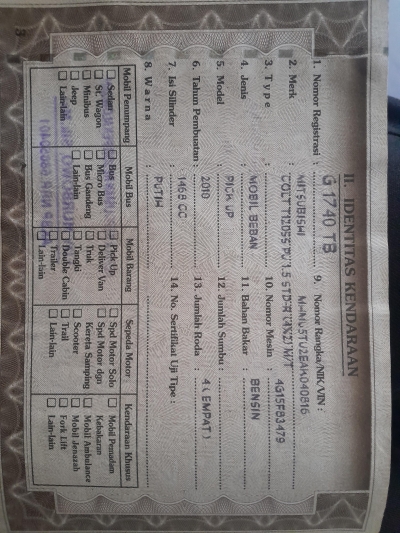 II. IDENTITAS KENDARAAN
1. Nomor Registrasi : G 1740 TB
2. Merk : MITSUBISHI
3. Type : COLT T120SS PU 1.5
4. Jenis : MOBIL BEBAN
5. Model : PICK UP
6. Tahun Pembuatan : 2010
7. Isi Silinder : 1468 CC
8. Warna : PUTIH
9. Nomor Rangka/NIK/VIN :
10. Nomor Mesin : 4G15F83479
11. Bahan Bakar : BENSIN
12. Jumlah Sumbu :
13. Jumlah Roda : 4 ( EMPAT )
14. No. Sertifikat Uji Tipe :
Mobil Penumpang Mobil Bus Mobil Barang Sepeda Motor Kendaraan Khusus
Sedan Bus Pick Up Spd Motor Solo Mobil Pemadam
St. Wagon Micro Bus Deliver Van Spd Motor dgn Kebakaran
Minibus Bus Gandeng Truk Kereta Samping Mobil Ambulance
Jeep Lain-lain Tangki Scooter Mobil Jenazah
Lain-lain Double Cabin Trail Fork Lift
Trailer Lain-lain Lain-lain
Lain-lain